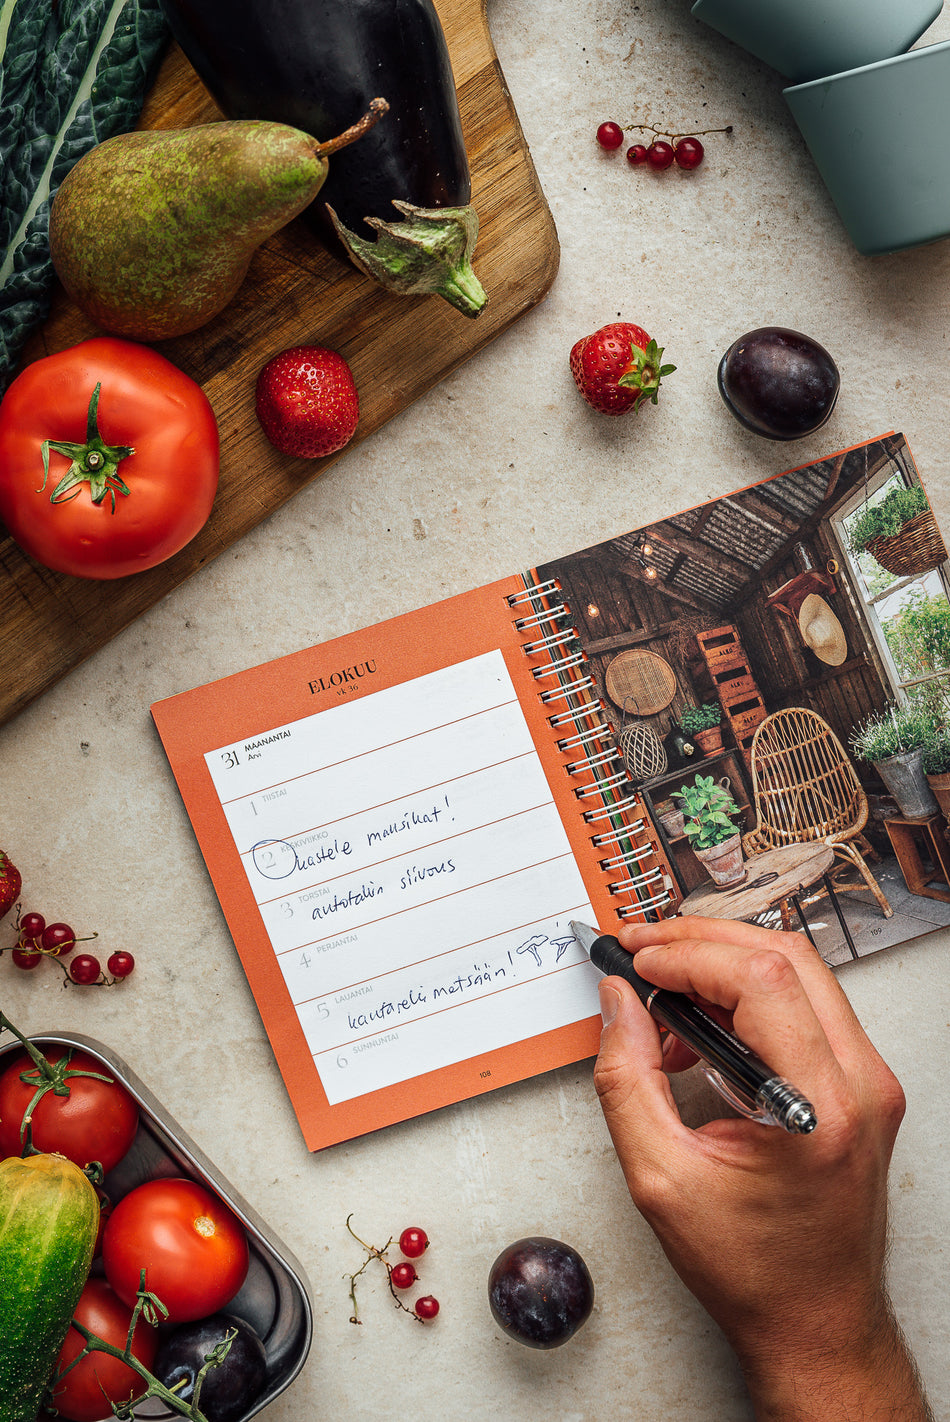 ELOKUU
vk 36
31 MAANANTAI
Arvi
1 TIISTAI
2 KESKIVIIKKO
kastele mansikat!
3 TORSTAI
autotallin siivous
4 PERJANTAI
5 LAUANTAI
kantarelli metsään!
6 SUNNUNTAI
108
109